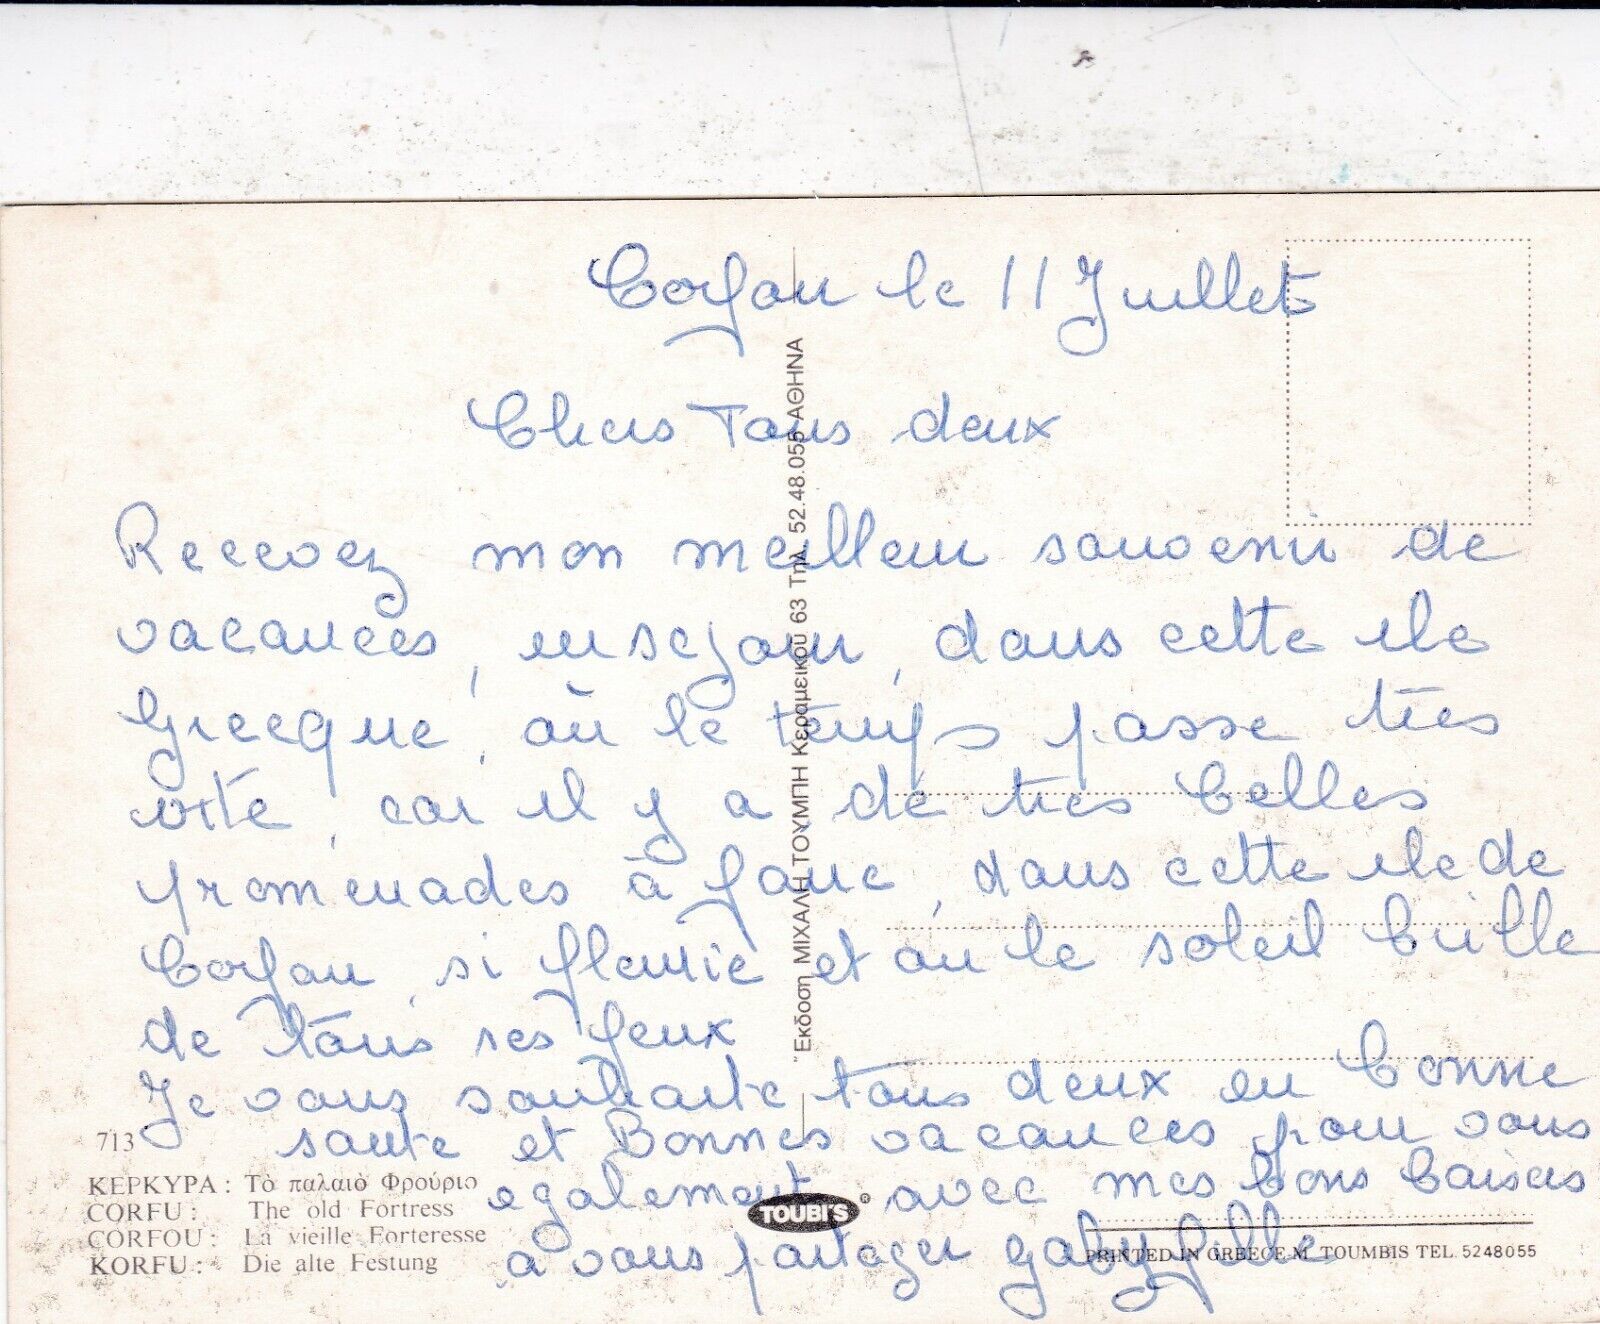 Corfou le 11 Juillet
Chers Tous deux
Recevez mon meilleur souvenir de
vacances, en sejour, dans cette ile
Grecque, où le temps passe très
vite, car il y a de tres belles
promenades à faire, dans cette ile de
Corfou, si fleurie et ou le soleil brille
de tous ses feux
Je vous souhaite tous deux en bonne
sante et Bonnes vacances pour vous
egalement, avec mes bons baisers
a vous partager Gaby
713
ΚΕΡΚΥΡΑ: Τὸ παλαιὸ Φρούριο
CORFU: The old Fortress
CORFOU: La vieille Forteresse
KORFU: Die alte Festung
Ἔκδοση ΜΙΧΑΛΗ ΤΟΥΜΠΗ Κεραμεικοῦ 63 Τηλ. 52.48.055 ΑΘΗΝΑ
TOUBI'S ®
PRINTED IN GREECE M. TOUMBIS TEL 5248055